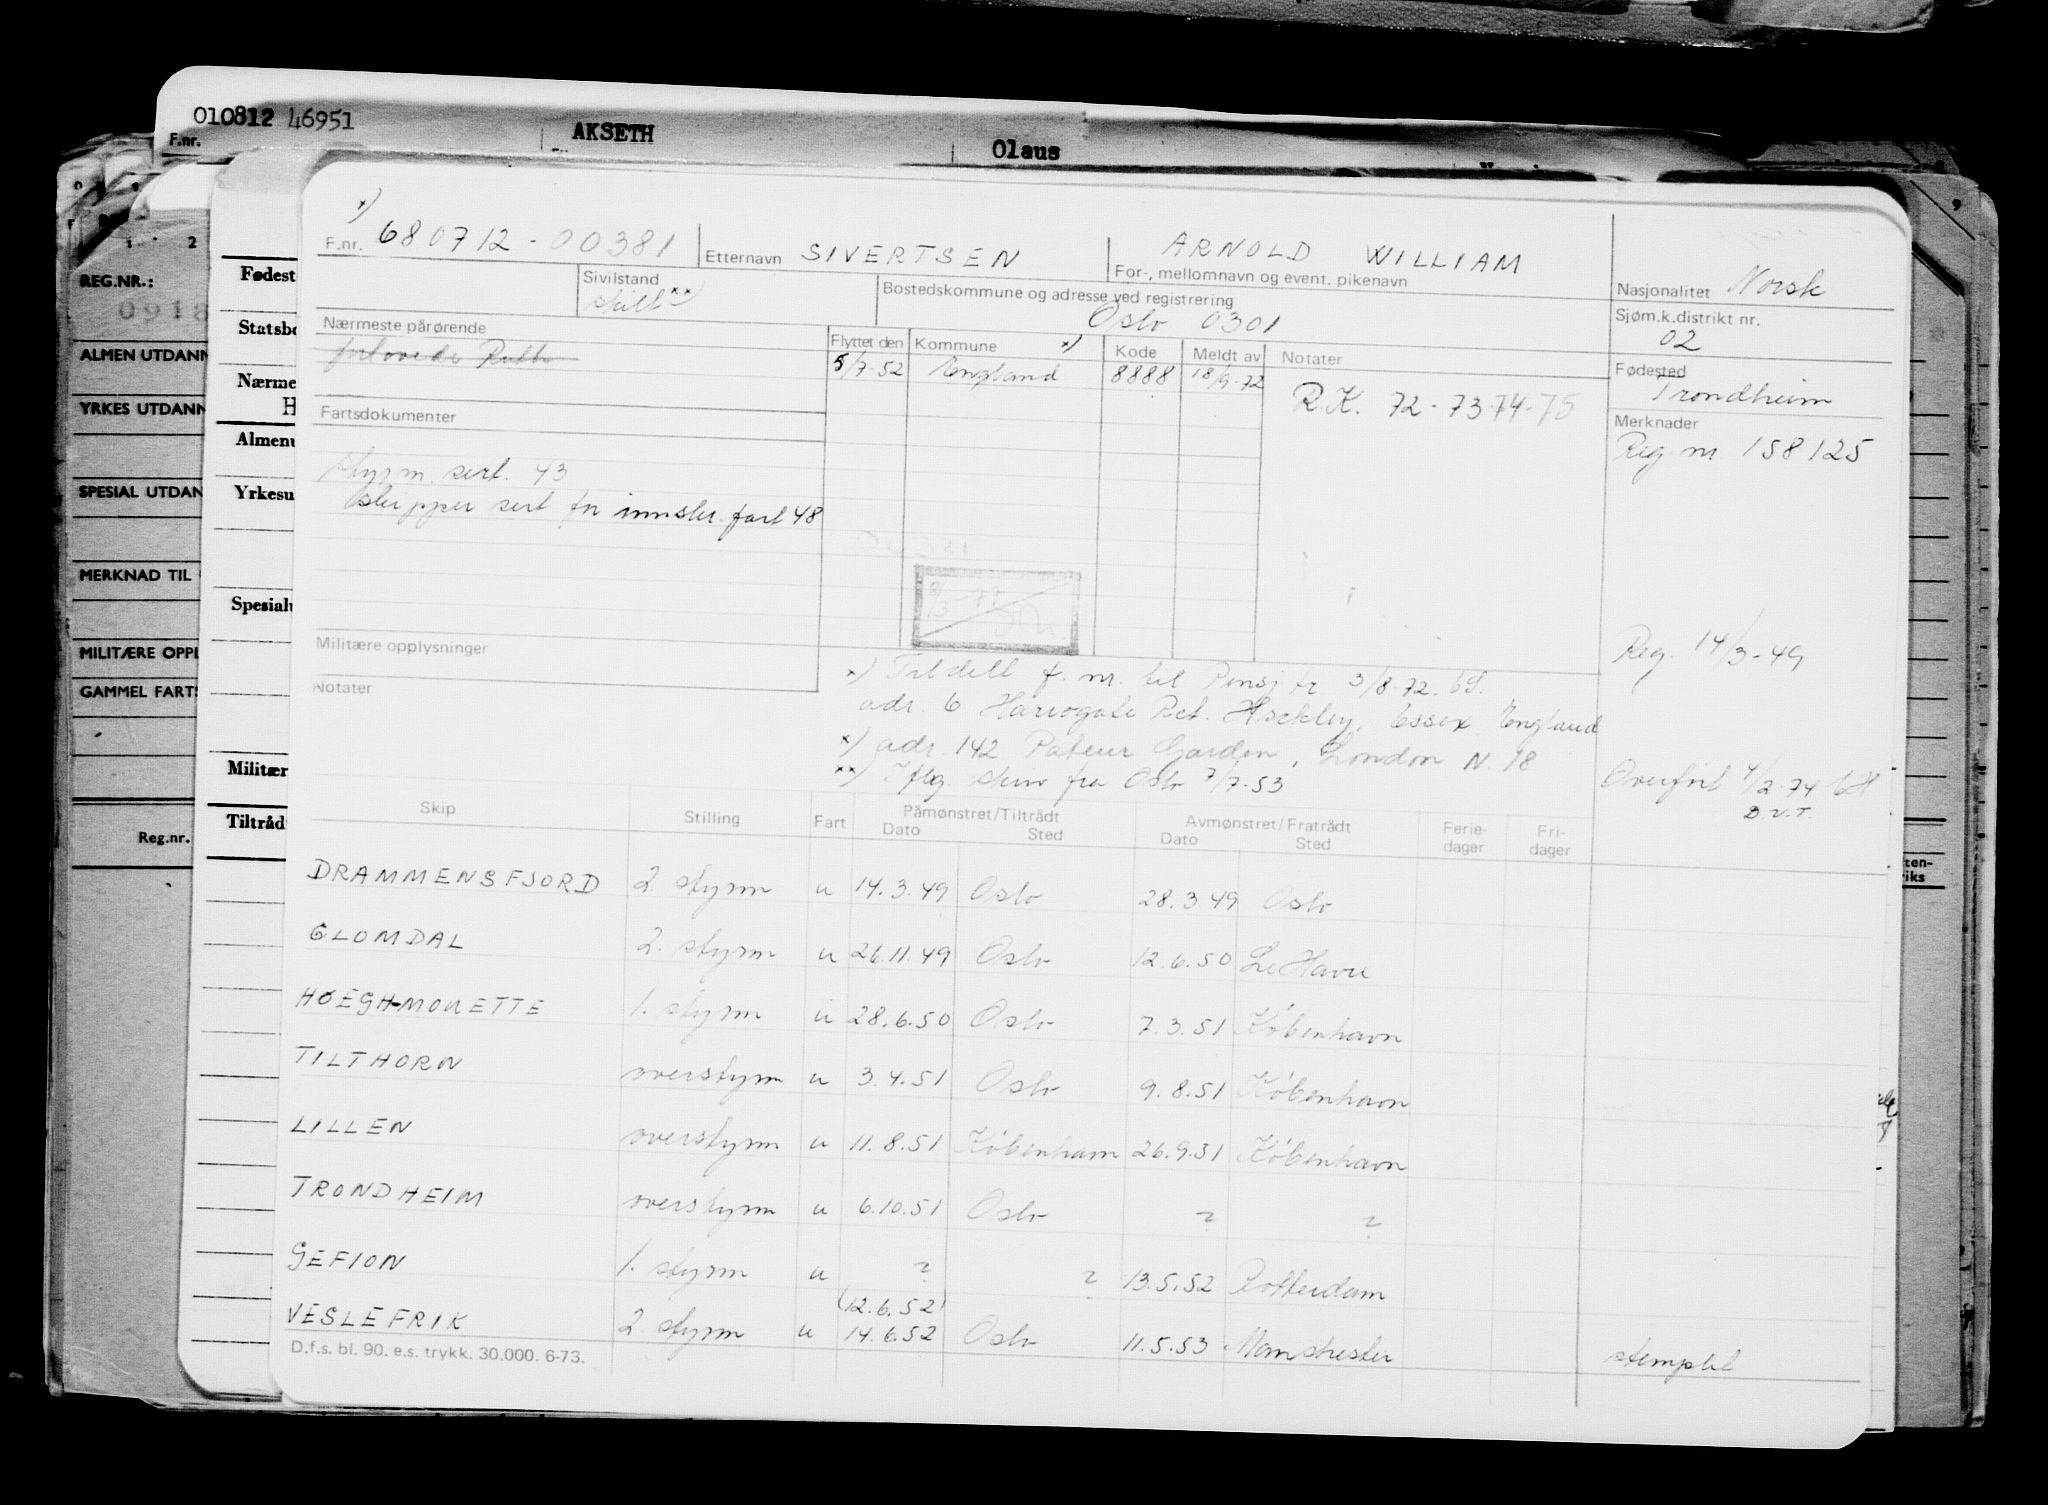 010812 46951
F.nr.
AKSETH
Olaus
x)
F.nr. 680712-00381 Etternavn SIVERTSEN ARNOLD WILLIAM
For-, mellomnavn og event. pikenavn
Nasjonalitet Norsk
Sivilstand
skilt xx)
Bostedskommune og adresse ved registrering
Oslo 0301
Sjøm.k.distrikt nr.
02
Nærmeste pårørende
forlovede Ruth
Flyttet den Kommune x) Kode Meldt av Notater
5/7-52 England 8888 18/9-72
R.K. 72-73-74-75
Fødested
Trondheim
Fartsdokumenter
Merknader
Reg. nr. 158125
styrm. sert. 43
skipper sert for innskr. fart 48
8/3-79
Militære opplysninger
Reg. 14/3-49
Notater
x) Tildelt f. nr. til Pensj tr 3/8-72.
adr. 6 Harrogate Rd. Hockley, Essex England
x) adr. 142 Garden, London N. 18
xx) Iflg. skriv fra Oslo 7/7-53
Overført 4/2-74
D.V.T.
Skip Stilling Fart Påmønstret/Tiltrådt Avmønstret/Fratrådt Ferie- Fri-
Dato Sted Dato Sted dager dager
DRAMMENSFJORD 2. styrm u 14.3.49 Oslo 28.3.49 Oslo
GLOMDAL 2. styrm u 26.11.49 Oslo 12.6.50 Le Havre
HØEGH-MOUETTE 1. styrm u 28.6.50 Oslo 7.3.51 København
TILTHORN overstyrm u 3.4.51 Oslo 9.8.51 København
LILLEN overstyrm u 11.8.51 København 26.9.51 København
TRONDHEIM overstyrm u 6.10.51 Oslo ? ?
GEFION 1. styrm u ? ? 13.5.52 Rotterdam
(12.6.52)
VESLEFRIK 2. styrm u 14.6.52 Oslo 11.5.53 Manchester stemplet
D.f.s. bl. 90. e.s. trykk. 30.000. 6-73.
REG.NR.:
0918
ALMEN UTDANN
YRKES UTDANN
SPESIAL UTDAN
MERKNAD TIL
MILITÆRE OPPL
GAMMEL FARTS
Reg.nr.
Fødest
Statsbo
Nærme
H
Almenu
Yrkesu
Spesialu
Militær
Tiltråd